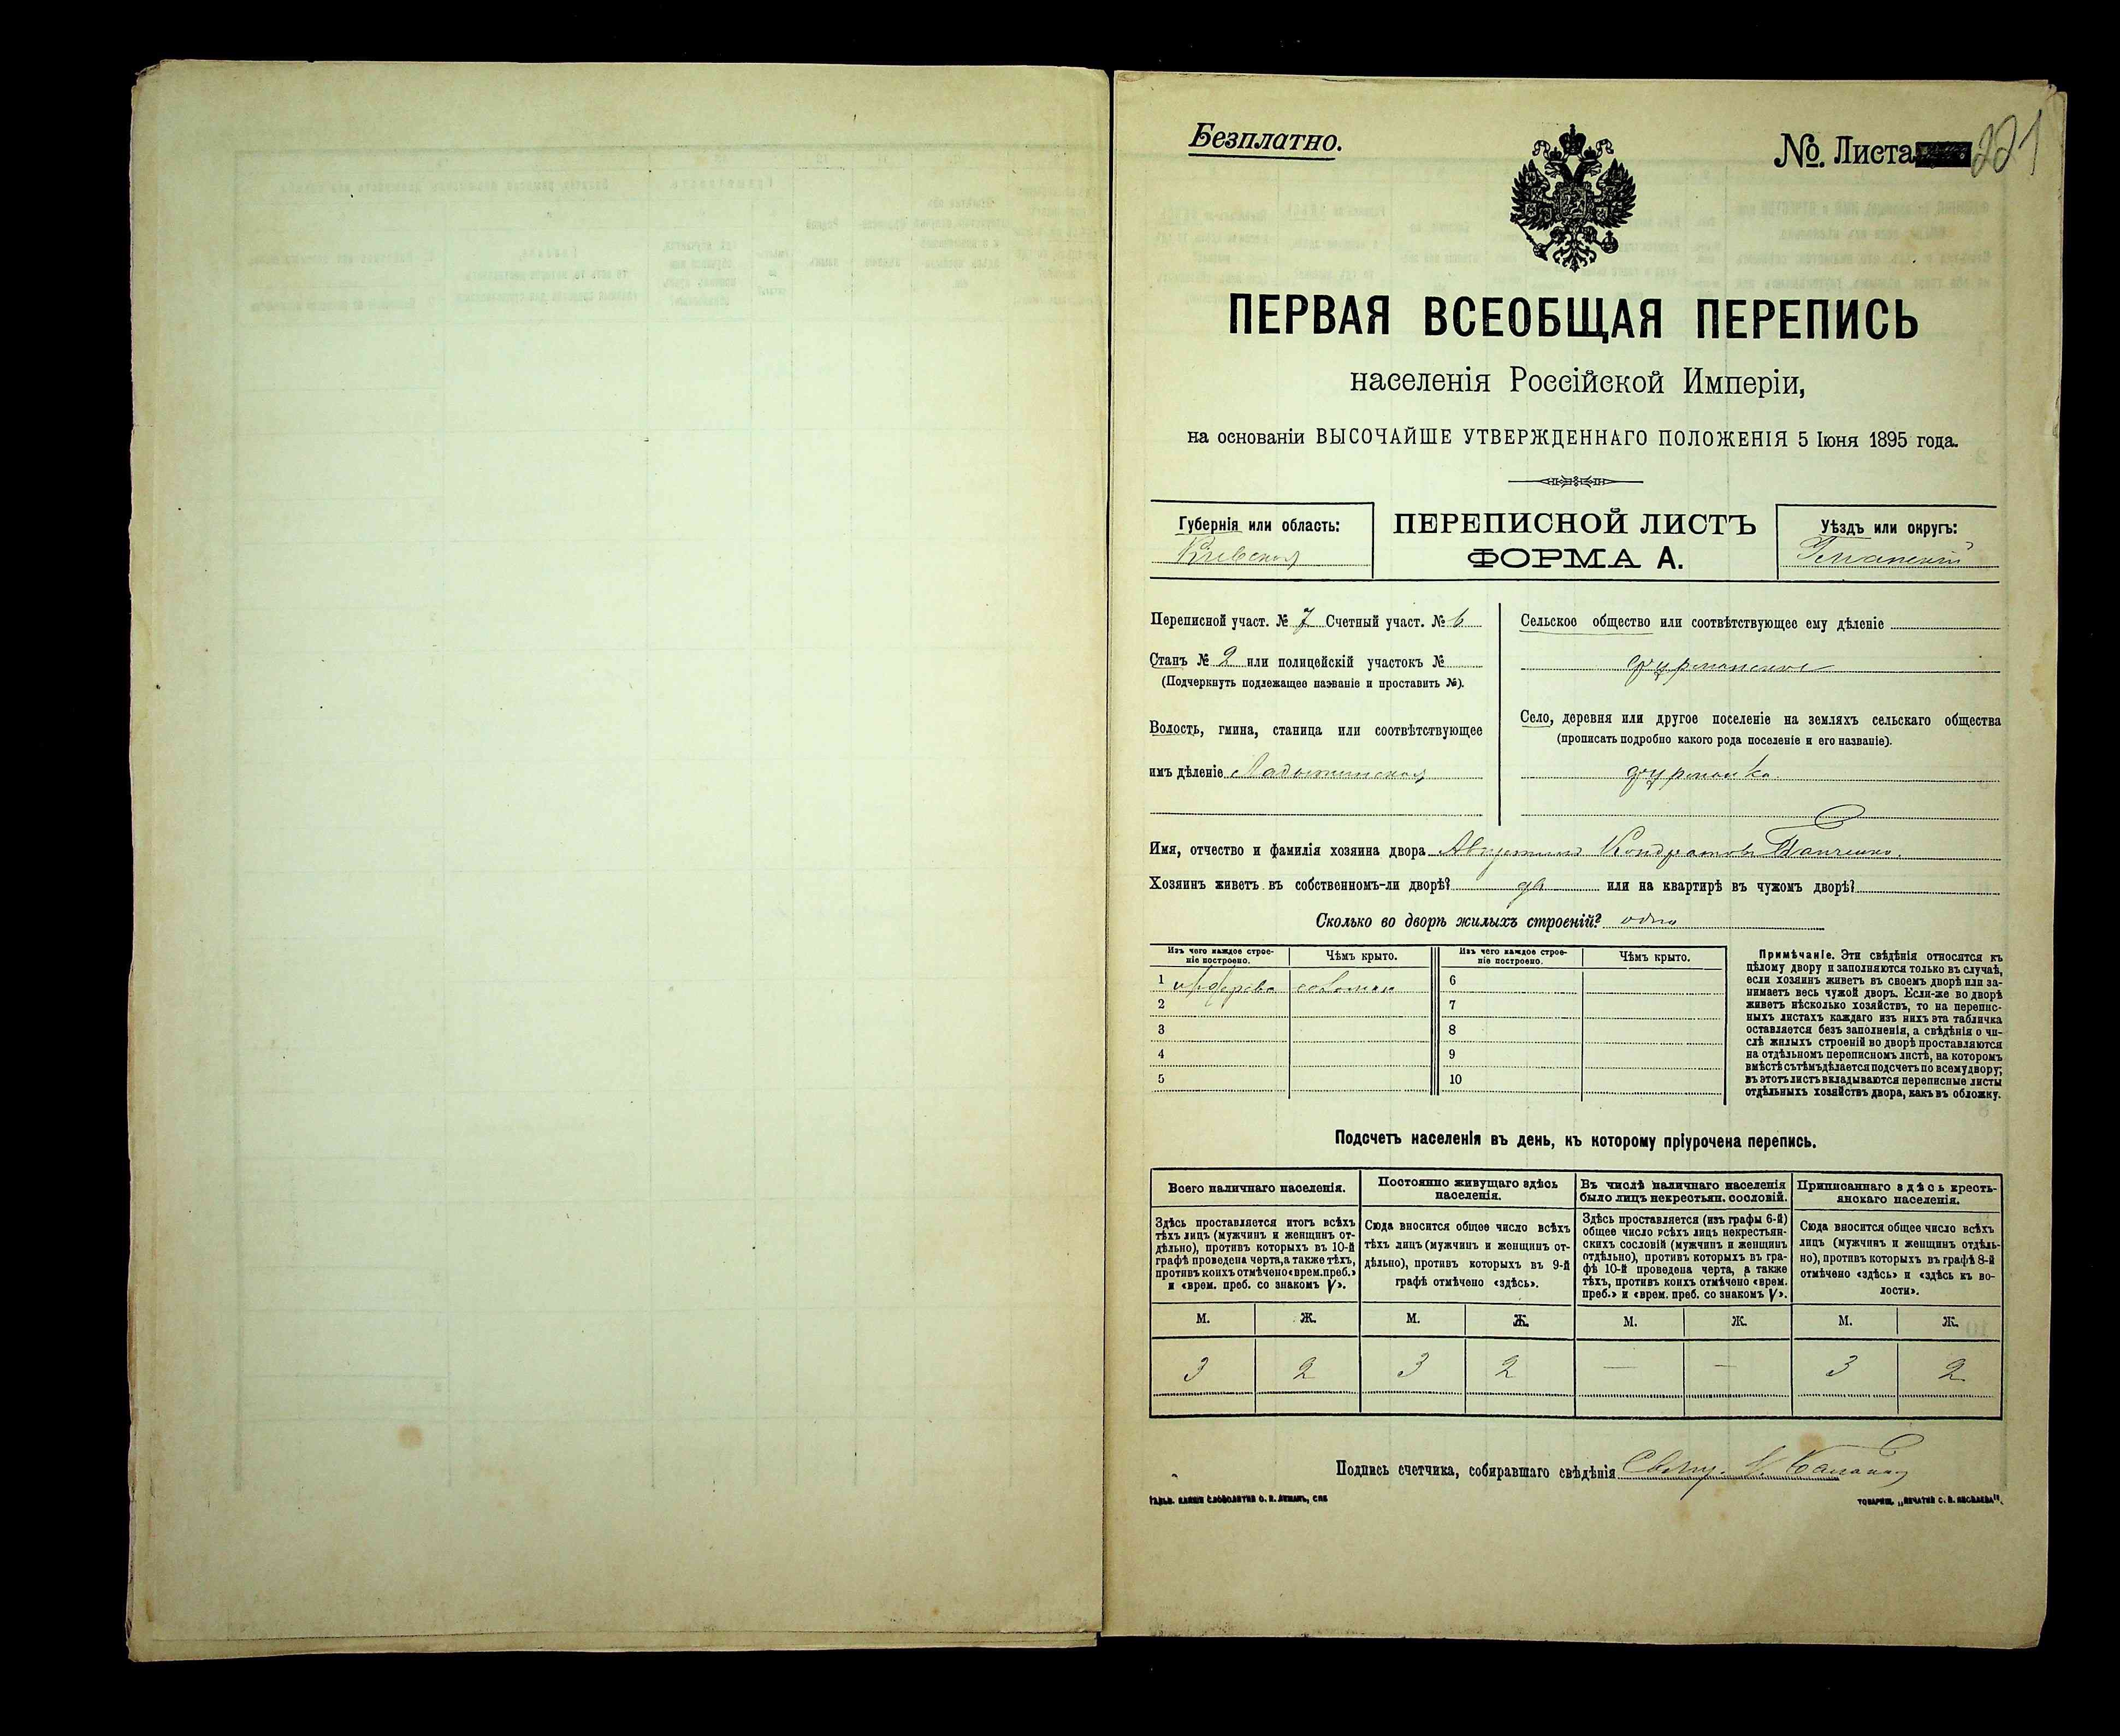 Безплатно.
№. Листа 221
ПЕРВАЯ ВСЕОБЩАЯ ПЕРЕПИСЬ
населенія Россійской Имперіи,
на основаніи ВЫСОЧАЙШЕ УТВЕРЖДЕННАГО ПОЛОЖЕНІЯ 5 Іюня 1895 года.
Губернія или область:
Кіевская
ПЕРЕПИСНОЙ ЛИСТЪ
ФОРМА А.
Уѣздъ или округъ:
Уманскій
Переписной участ. № 7 Счетный участ. № 6
Станъ № 2 или полицейскій участокъ №
(Подчеркнуть подлежащее названіе и проставить №).
Волость, гмина, станица или соотвѣтствующее
имъ дѣленіе Ладыжинская
Сельское общество или соотвѣтствующее ему дѣленіе
фурманское
Село, деревня или другое поселеніе на земляхъ сельскаго общества
(прописать подробно какого рода поселеніе и его названіе).
фурманка.
Имя, отчество и фамилія хозяина двора Августинъ Кондратовъ Панченко.
Хозяинъ живетъ въ собственномъ-ли дворѣ? да или на квартирѣ въ чужомъ дворѣ?
Сколько во дворѣ жилыхъ строеній? одно
Изъ чего каждое строе-
ніе построено.
Чѣмъ крыто.
Изъ чего каждое строе-
ніе построено.
Чѣмъ крыто.
1 изъ дерева соломою
2
3
4
5
6
7
8
9
10
Примѣчаніе. Эти свѣдѣнія относятся къ
цѣлому двору и заполняются только въ случаѣ,
если хозяинъ живетъ въ своемъ дворѣ или за-
нимаетъ весь чужой дворъ. Если-же во дворѣ
живетъ нѣсколько хозяйствъ, то на перепис-
ныхъ листахъ каждаго изъ нихъ эта табличка
оставляется безъ заполненія, а свѣдѣнія о чи-
слѣ жилыхъ строеній во дворѣ проставляются
на отдѣльномъ переписномъ листѣ, на которомъ
вмѣстѣ съ тѣмъ дѣлается подсчетъ по всему двору;
въ этотъ листъ вкладываются переписные листы
отдѣльныхъ хозяйствъ двора, какъ въ обложку.
Подсчетъ населенія въ день, къ которому пріурочена перепись.
Всего наличнаго населенія.
Здѣсь проставляется итогъ всѣхъ
тѣхъ лицъ (мужчинъ и женщинъ от-
дѣльно), противъ которыхъ въ 10-й
графѣ проведена черта, а также тѣхъ,
противъ коихъ отмѣчено «врем. преб.»
и «врем. преб. со знакомъ V».
Постоянно живущаго здѣсь
населенія.
Сюда вносится общее число всѣхъ
тѣхъ лицъ (мужчинъ и женщинъ от-
дѣльно), противъ которыхъ въ 9-й
графѣ отмѣчено «здѣсь».
Въ числѣ наличнаго населенія
было лицъ некрестьян. сословій.
Здѣсь проставляется (изъ графы 6-й)
общее число всѣхъ лицъ некрестьян-
скихъ сословій (мужчинъ и женщинъ
отдѣльно), противъ которыхъ въ гра-
фѣ 10-й проведена черта, а также
тѣхъ, противъ коихъ отмѣчено «врем.
преб.» и «врем. преб. со знакомъ V».
Приписаннаго здѣсь кресть-
янскаго населенія.
Сюда вносится общее число всѣхъ
лицъ (мужчинъ и женщинъ отдѣль-
но), противъ которыхъ въ графѣ 8-й
отмѣчено «здѣсь» и «здѣсь къ во-
лости».
М. Ж. М. Ж. М. Ж. М. Ж.
3 2 3 2 — — 3 2
Подпись счетчика, собиравшаго свѣдѣнія Свящ.